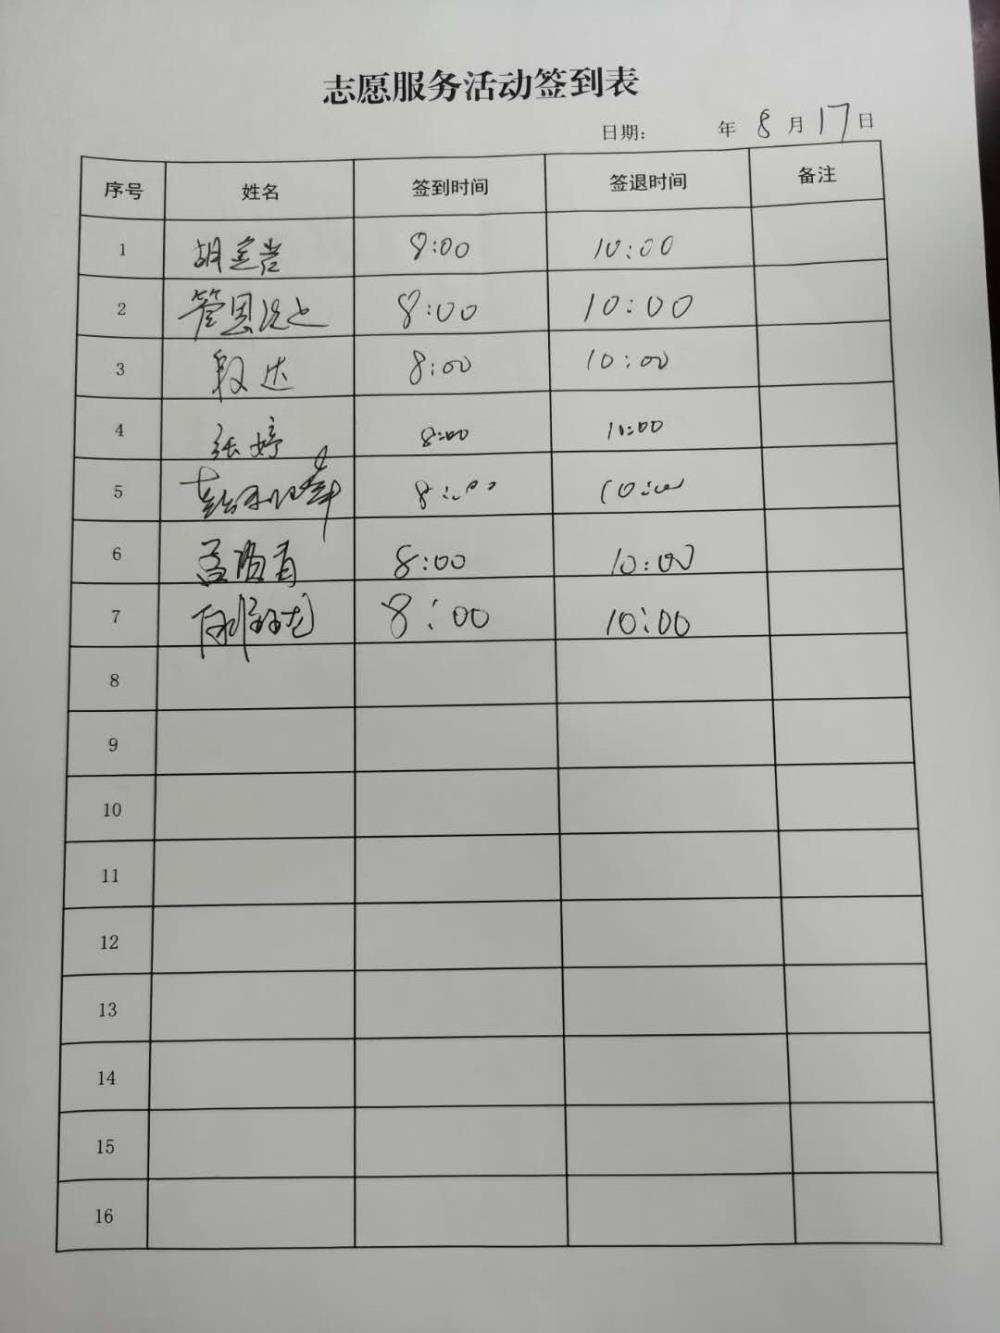 志愿服务活动签到表
日期： 年 8 月 17 日
序号 姓名 签到时间 签退时间 备注
1 胡 8:00 10:00
2 管恩 8:00 10:00
3 段达 8:00 10:00
4 张婷 8:00 10:00
5 8:00 10:00
6 孟 8:00 10:00
7 8:00 10:00
8
9
10
11
12
13
14
15
16